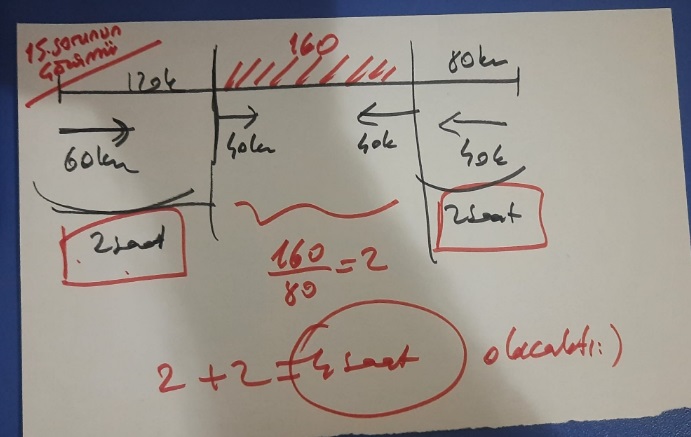 15. sorunun
çözümü
160
120k
80km
60km
40km
40k
40k
2 saat
2 saat
160
80
=2
2+2=4 saat olacaktı:)